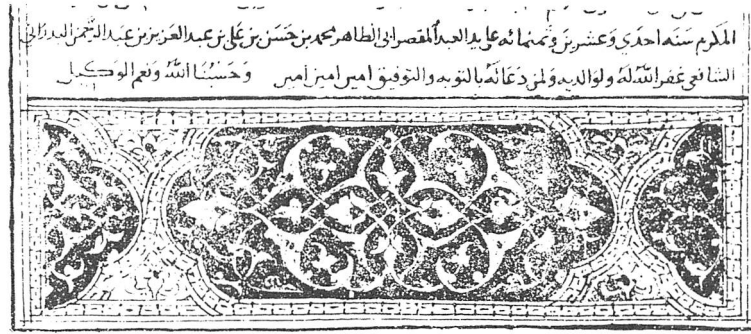 المكرم سنه احدي وعشرين وثمنمائه علي يد العبد المقصر ابي الطاهر محمد بن حسن بن علي بن عبد العزيز بن عبد الرحمن
الشافعي غفر الله له ولوالديه ولمن دعا له بالتوبه والتوفيق امير امين امير وحسبنا الله ونعم الوكيل